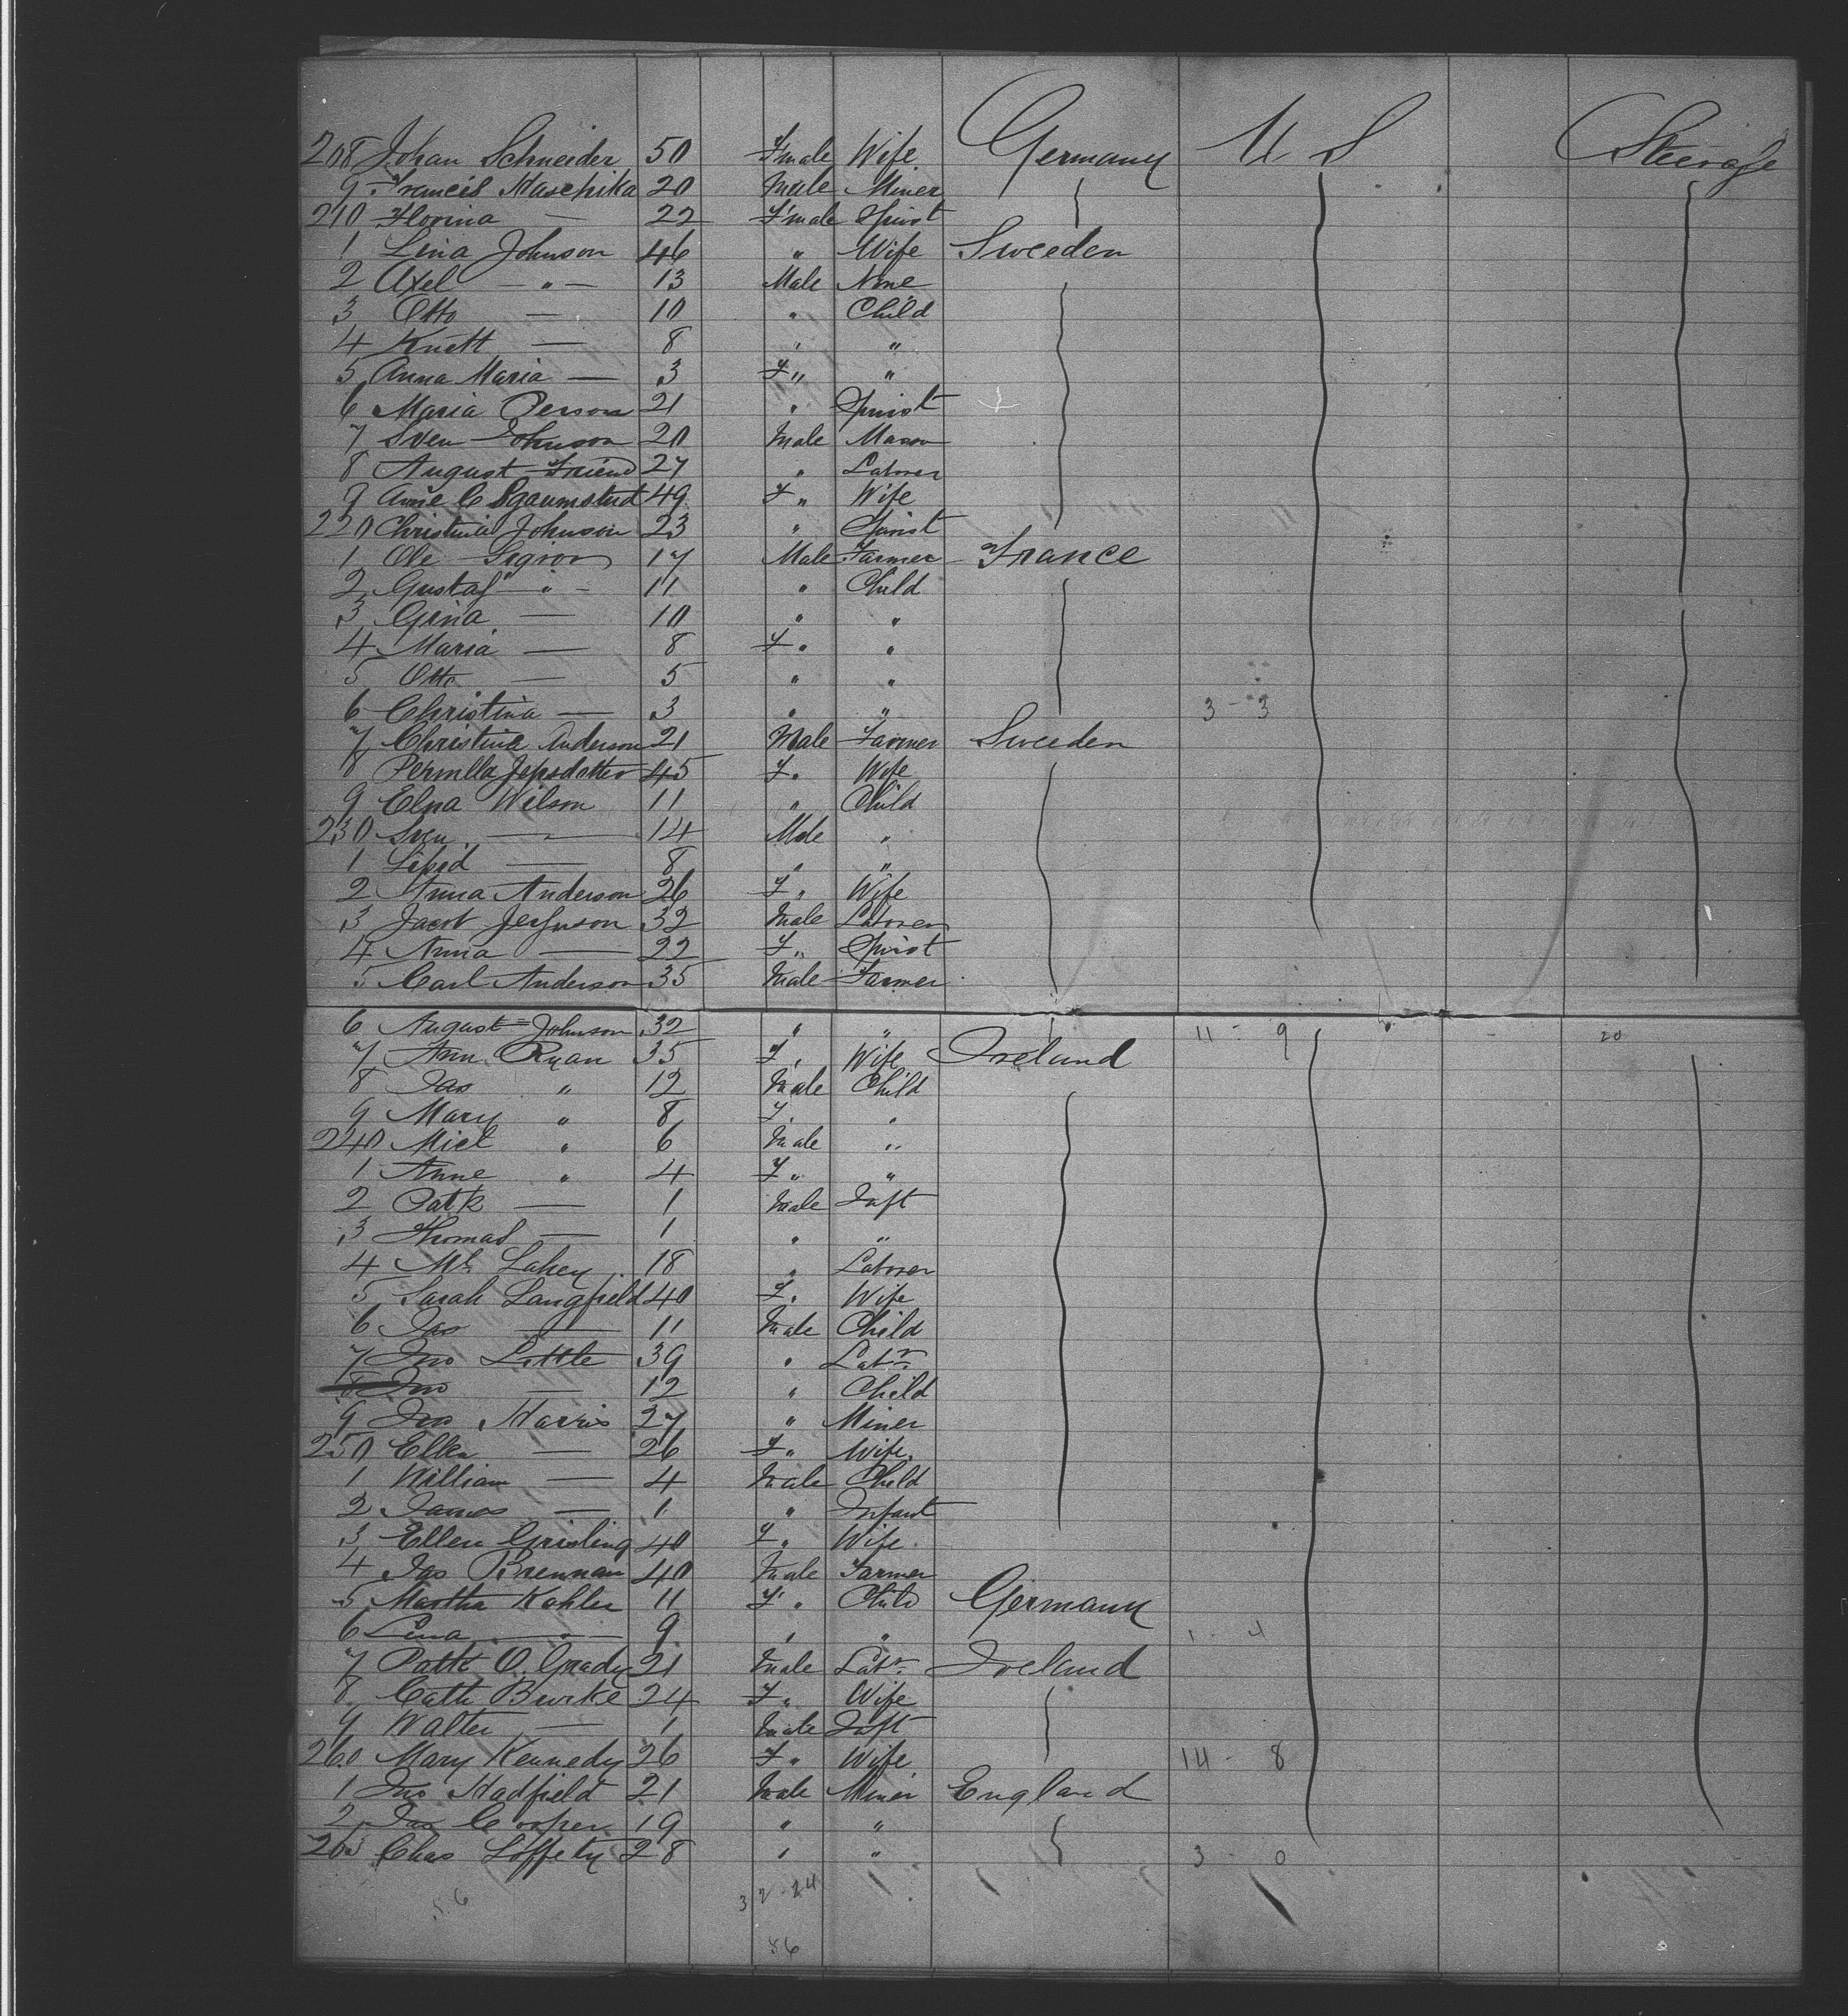 208 Johan Schneider 50 Fmale Wife Germany U S Steerage
9 Francis Maschika 20 Male Miner
210 Florina — 22 F'male Spinst
1 Lina Johnson 46 " Wife Sweeden
2 Axel — " — 13 Male None
3 Otto — 10 " Child
4 Knett — 8 " "
5 Anna Maria — 3 F " "
6 Maria Person 21 " Spinst
7 Sven Johnson 20 Male Mason
8 August Friend 27 " Laborer
9 C 49 F " Wife
220 Christina Johnson 23 " Spinst
1 Ole 17 Male Farmer France
2 Gustaf — " — 11 " Child
3 Gina — 10 " "
4 Maria — 8 F " "
5 Otto — 5 " "
6 Christina — 3 " " 3 - 3
7 Christine Anderson 21 Male Farmer Sweeden
8 Pernilla Jepsdotter 45 F " Wife
9 Elna Wilson 11 " Child
230 Sven — 14 Male "
1 — 8 " "
2 Anna Anderson 26 F " Wife
3 Jacob 32 Male Laborer
4 Anna — 22 F " Spinst
5 Carl Anderson 35 Male Farmer
6 August Johnson 32 " " 11 - 9 20
7 Ann Ryan 35 F " Wife Ireland
8 Jas " 12 Male Child
9 Mary " 8 F "
240 Micl " 6 Male "
1 Anne " 4 F " "
2 Patk — 1 Male Inft
3 Thomas — 1 " "
4 Ml Lahey 18 " Laborer
5 Sarah Langfield 40 F " Wife
6 Jas — 11 Male Child
7 Jno Little 39 " Labr
8 Jno — 12 " Child
9 Jno Harris 27 " Miner
250 Ellen — 26 F " Wife
1 William — 4 Male Child
2 James — 1 " Infant
3 Ellen Grisling 40 F " Wife
4 Jas Brennan 40 Male Farmer
5 Martha Kohler 11 F " Child Germany
6 Lena — 9 " " 1 - 4
7 Patk O. Grady 21 Male Labr Ireland
8 Cath Burke 24 F " Wife
9 Walter — 1 Male Inft
260 Mary Kennedy 26 F " Wife 14 - 8
1 Jno Hadfield 21 Male Miner England
2 Jas Cooper 19 " "
263 Chas Loffety 28 " " 3 - 0
56 32 - 24